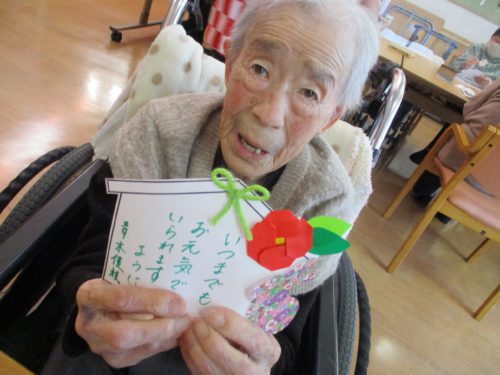 いつまでも
お元気で
いられます
ように